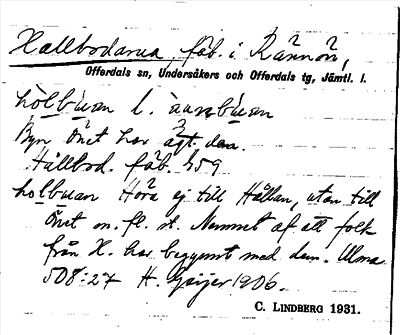 Hallbodarna, fäb. i Rännön,
Offerdals sn, Undersåkers och Offerdals tg, Jämtl. l.
hòlbu̠an l. ùanbu̠an
Byn Önet har ägt den.
Hållbod. fäb. G59
holbuan Höra ej till Hållan, utan till
Önet m. fl. st. Namnet af att folk
från H. har begynt med dem. Ulma
508:27 H. Geijer 1906.
C. LINDBERG 1931.